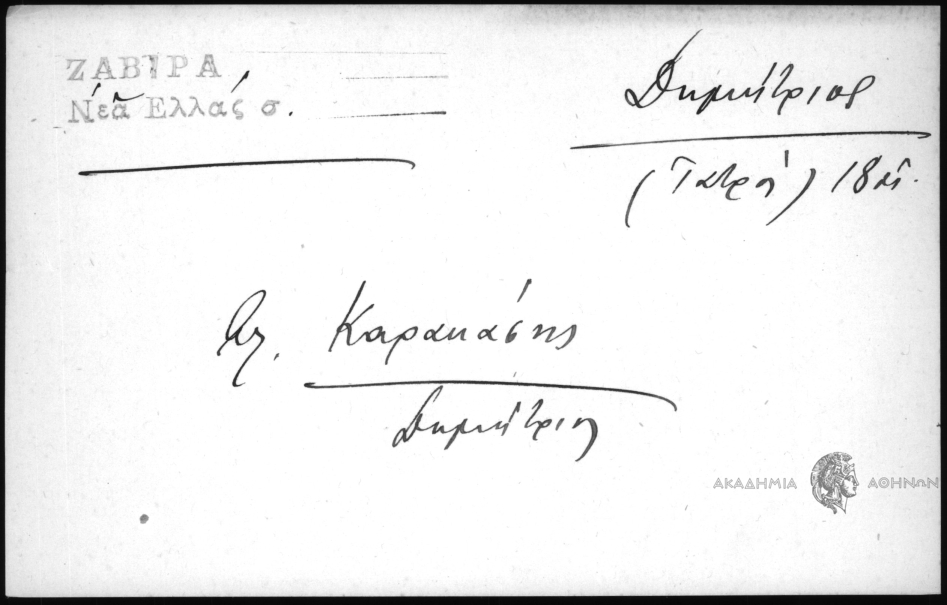 ΖΑΒΙΡΑ
Νέα Ἑλλάς σ.
Δημήτριος
(Ἰατρός) 18 αἰ.
Βλ. Καρακάσης
Δημήτριος
ΑΚΑΔΗΜΙΑ ΑΘΗΝΩΝ